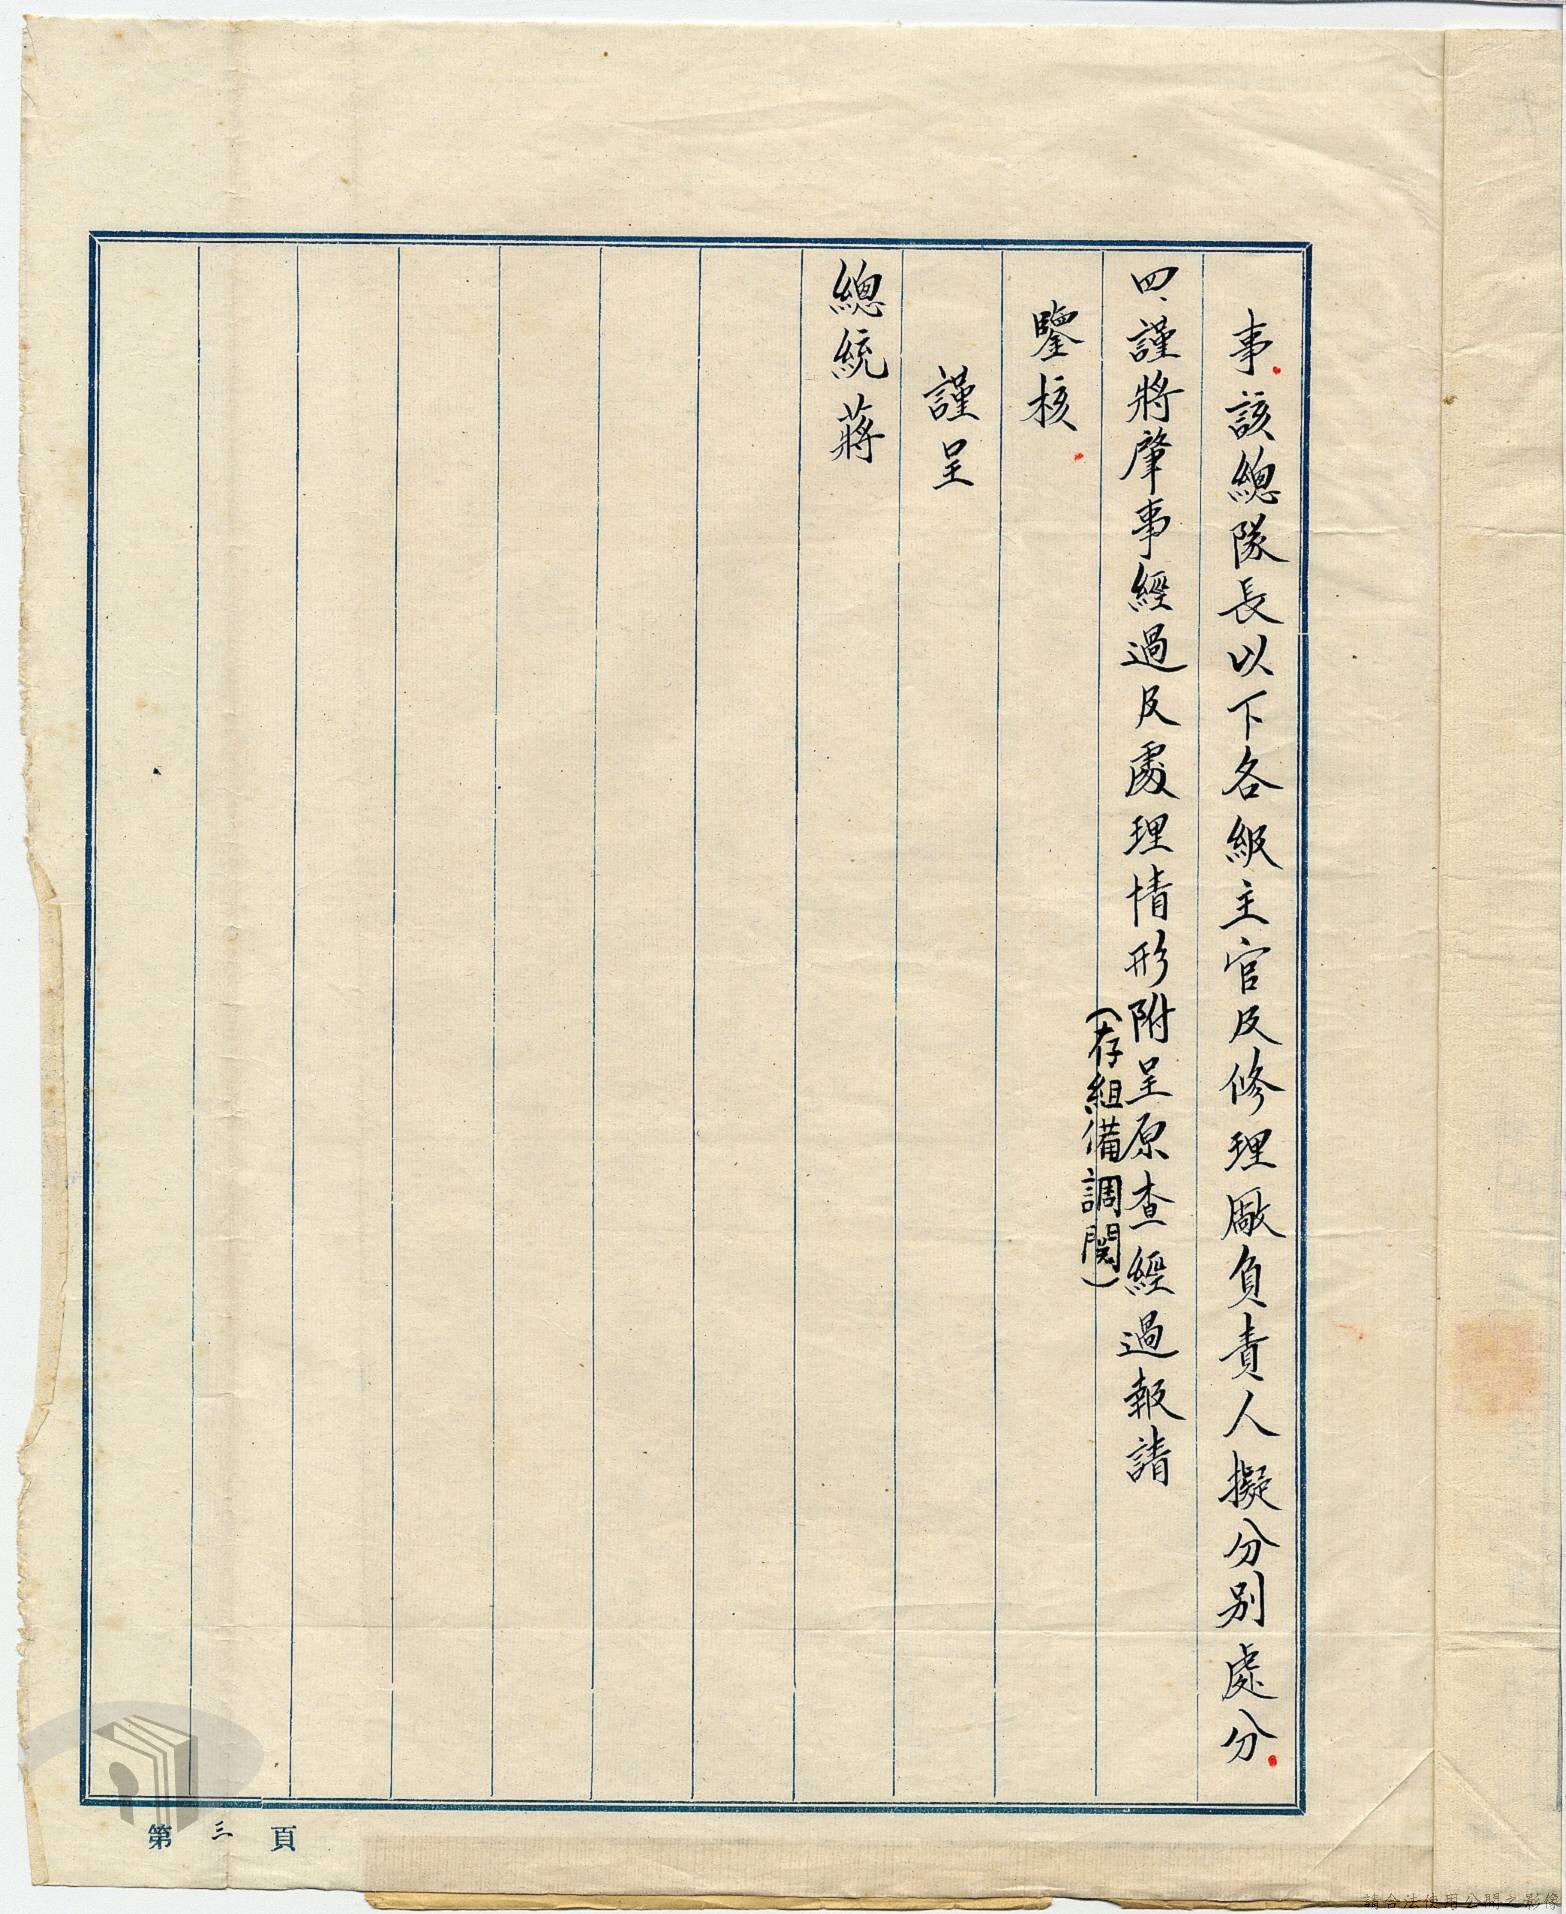 事該總隊長以下各級主官及修理廠負責人擬分別處分
四、謹將肇事經過及處理情形附呈原查經過報請
(存組備調閱)
鑒核
謹呈
總統蔣
第三頁
請合法使用公開之影像